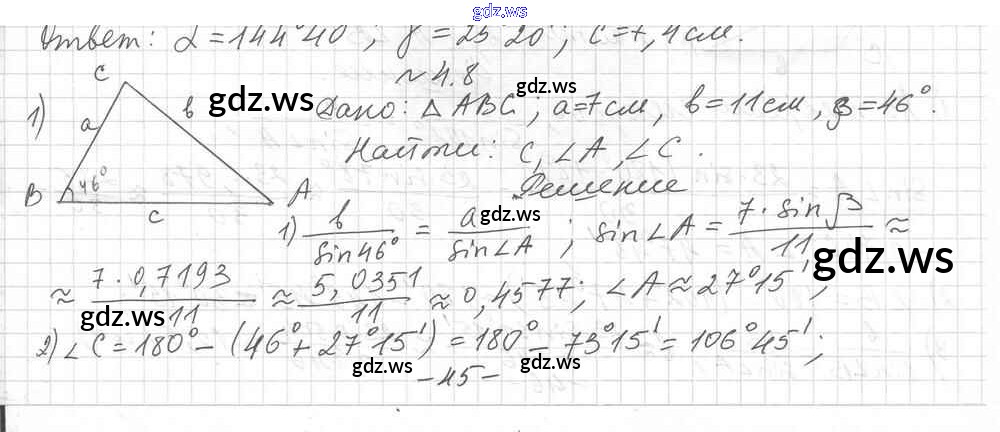 gdz.ws
Ответ: α = 144°40', γ = 25°20', c = 7,4 см.
~ 4.8
1) C a b B 46° c A
Дано: △ABC; a = 7 см, b = 11 см, β = 46°.
gdz.ws
Найти: C, ∠A, ∠C.
Решение
1) b/sin46° = a/sin∠A; sin∠A = 7·sinβ/11 ≈
gdz.ws
gdz.ws
≈ 7·0,7193/11 ≈ 5,0351/11 ≈ 0,4577; ∠A ≈ 27°15';
gdz.ws
2) ∠C = 180° – (46° + 27°15') = 180° – 73°15' = 106°45';
gdz.ws
gdz.ws
– 45 –